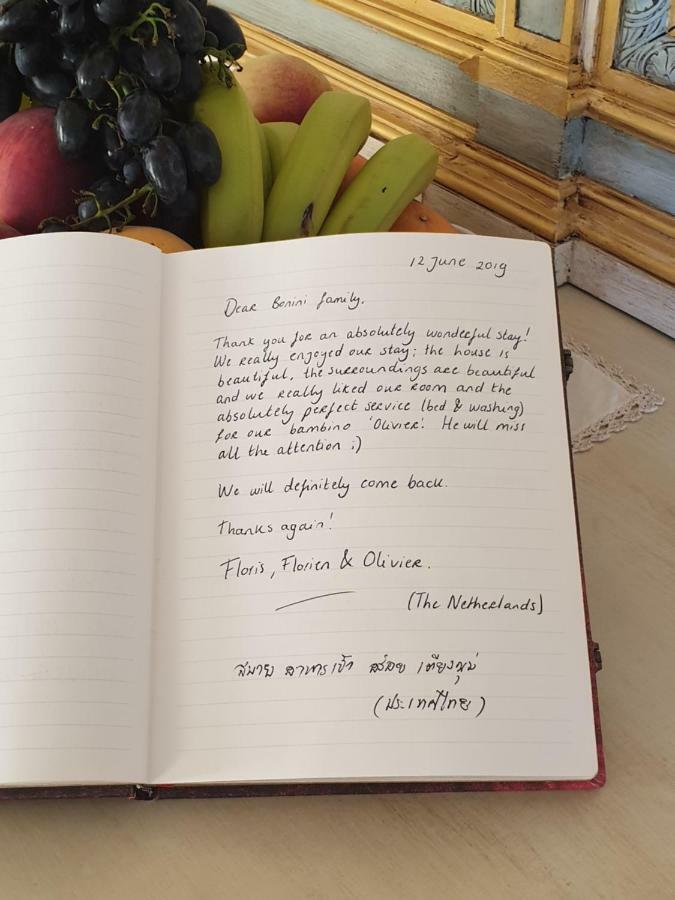 12 June 2019
Dear Bonini family,
Thank you for an absolutely wonderful stay!
We really enjoyed our stay; the house is
beautiful, the surroundings are beautiful
and we really liked our room and the
absolutely perfect service (bed & washing)
for our bambino 'Olivier'. He will miss
all the attention ;)
We will definitely come back.
Thanks again!
Floris, Florien & Olivier.
(The Netherlands)
สบาย อาหารเช้า อร่อย เตียงนุ่ม
(ประเทศไทย)